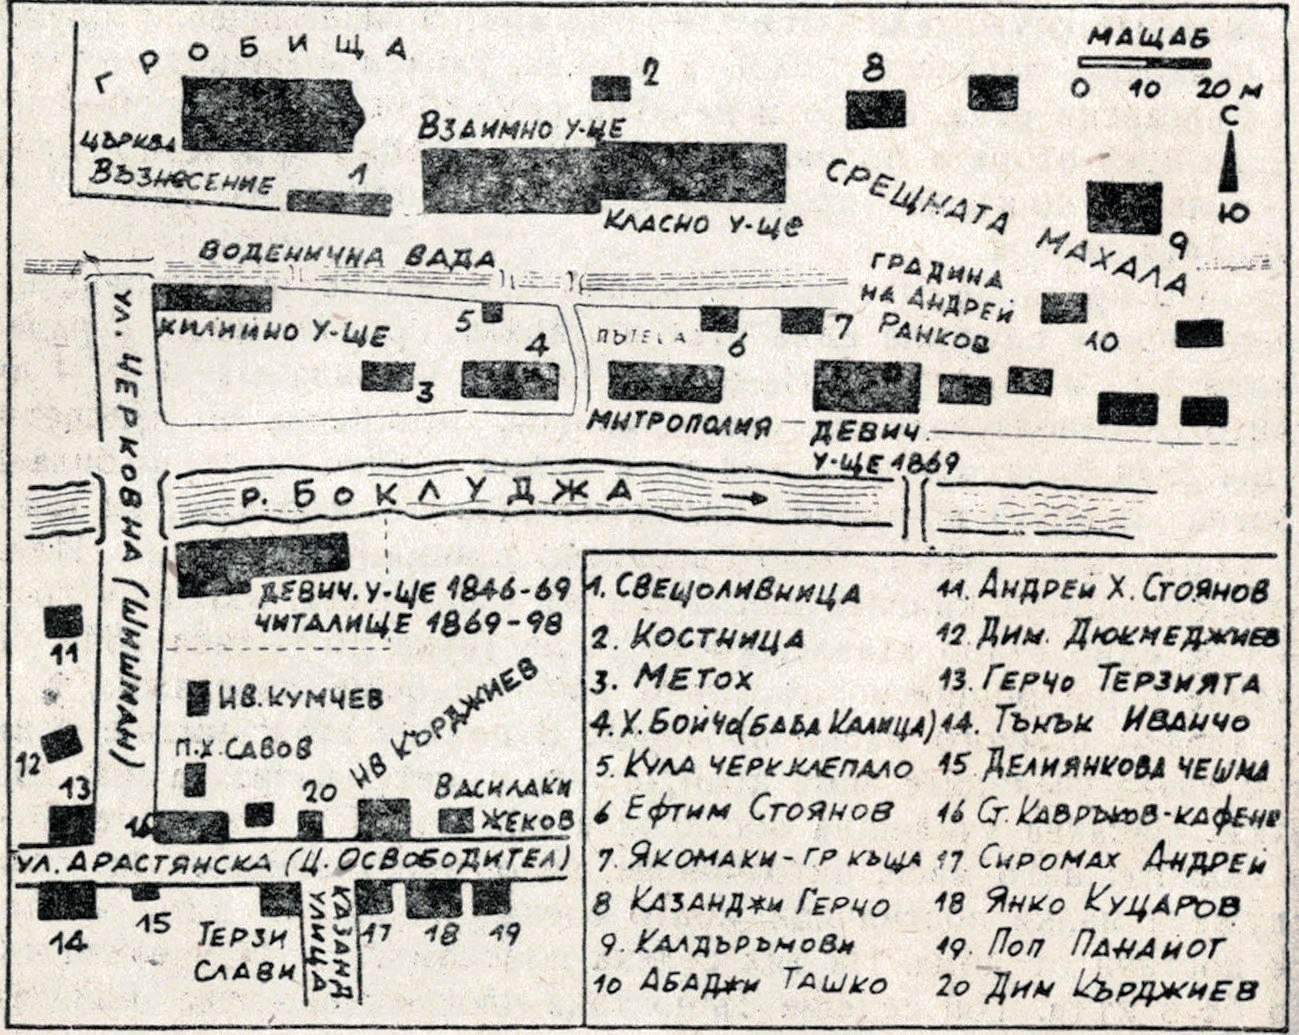 ГРОБИЩА
МАЩАБ
0 10 20 м
С
Ю
ЦЪРКВА
ВЪЗНЕСЕНИЕ
1
2
8
ВЗАИМНО У-ЩЕ
КЛАСНО У-ЩЕ
СРЕЩНАТА МАХАЛА
9
ВОДЕНИЧНА ВАДА
ГРАДИНА
НА АНДРЕЙ
РАНКОВ
10
КИЛИЙНО У-ЩЕ
5
4
3
ПЪТЕКА
6
7
МИТРОПОЛИЯ
ДЕВИЧ.
У-ЩЕ 1869
УЛ. ЧЕРКОВНА (ШИШМАН)
р. БОКЛУДЖА
ДЕВИЧ. У-ЩЕ 1846-69
ЧИТАЛИЩЕ 1869-98
11
ИВ. КУМЧЕВ
П.Х. САВОВ
ИВ КЪРДЖИЕВ
12
13
16
20
ВАСИЛАКИ
ЖЕКОВ
УЛ. АРАСТЯНСКА (Ц. ОСВОБОДИТЕЛ)
14
15
ТЕРЗИ
СЛАВИ
КАЗАНД.
УЛИЦА
17
18
19
1. СВЕЩОЛИВНИЦА
2. КОСТНИЦА
3. МЕТОХ
4. Х. БОЙЧО (БАБА КАЛИЦА)
5. КУЛА ЧЕРК. КЛЕПАЛО
6 ЕФТИМ СТОЯНОВ
7. ЯКОМАКИ - ГР КЪЩА
8 КАЗАНДЖИ ГЕРЧО
9. КАЛДЪРЪМОВИ
10 АБАДЖИ ТАШКО
11. АНДРЕЙ Х. СТОЯНОВ
12. ДИМ. ДЮКМЕДЖИЕВ
13. ГЕРЧО ТЕРЗИЯТА
14. ТЪНЪК ИВАНЧО
15 ДЕЛИЯНКОВА ЧЕШМА
16 СТ. КАВРЪКОВ - КАФЕНЕ
17 СИРОМАХ АНДРЕЙ
18 ЯНКО КУЦАРОВ
19. ПОП ПАНАЙОТ
20 ДИМ КЪРДЖИЕВ